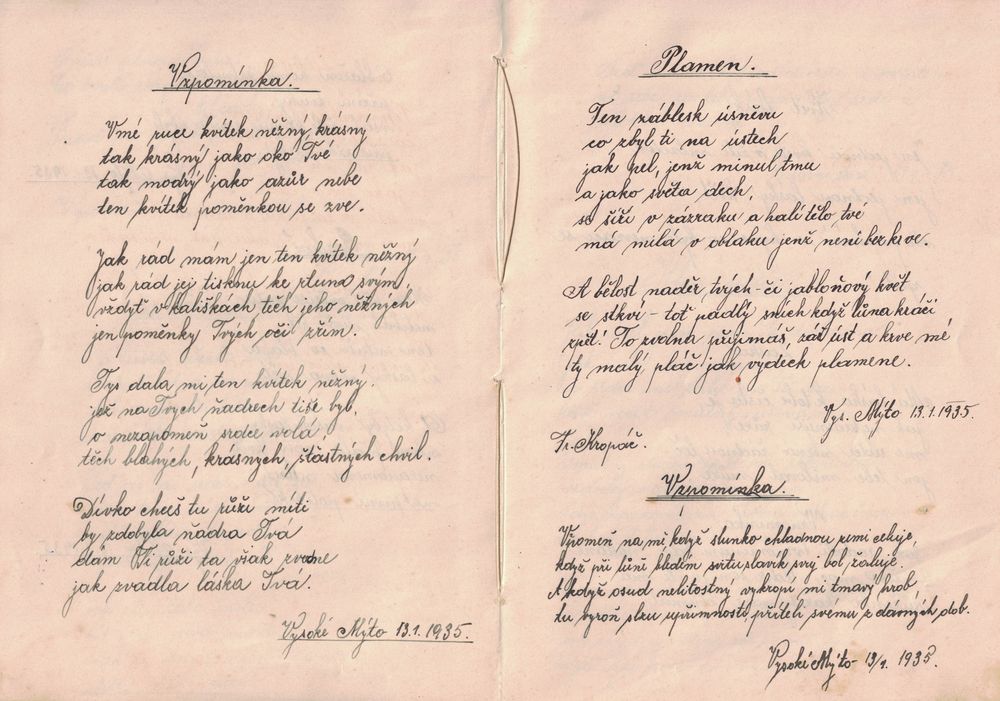 Vzpomínka.
V mé ruce kvítek něžný, krásný
tak krásný, jako oko Tvé
tak modrý, jako azůr nebe
ten kvítek poměnkou se zve.
Jak rád mám jen ten kvítek něžný
jak rád jej tisknu ke rtům svým,
vždyť v kalíškách těch jeho něžných
jen poměnky Tvých očí zřím.
Tys dala mi ten kvítek něžný.
jež na Tvých ňadrech tiše byl.
o nezapomeň srdce volá,
těch blahých, krásných, šťastných chvil.
Dívko chceš tu růži míti
by zdobila ňadra Tvá
dám Ti růži ta však zvadne
jak zvadla láska Tvá.
Vysoké Mýto 13.1.1935.
Plamen.
Ten záblesk úsněvu
co zbyl ti na ústech
jak pel, jenž minul tmu
a jako světa dech,
se šíří v zázraku a halí tělo tvé
má milá v oblaku jenž není bez krve.
A bělost nader tvých - či jabloňový květ
se stkví - toť padlý sních když luna kráčí
zpět! To zvolna přijímáš, zář úst a krve mé
ty malý pláč jak výdech plamene.
Vys. Mýto 13.1.1935.
Fr. Kropáč.
Vzpomínka.
Vzpomeň na mě, když slunko chladnou zemi celuje,
když při luně bledém svitu slavík svůj bol žaluje.
A když osud nelítostný vykrojí mi tmavý hrob,
tu vyroň slzu upřímnosti příteli svému z dávných dob.
Vysoké Mýto - 13/1. 1935.